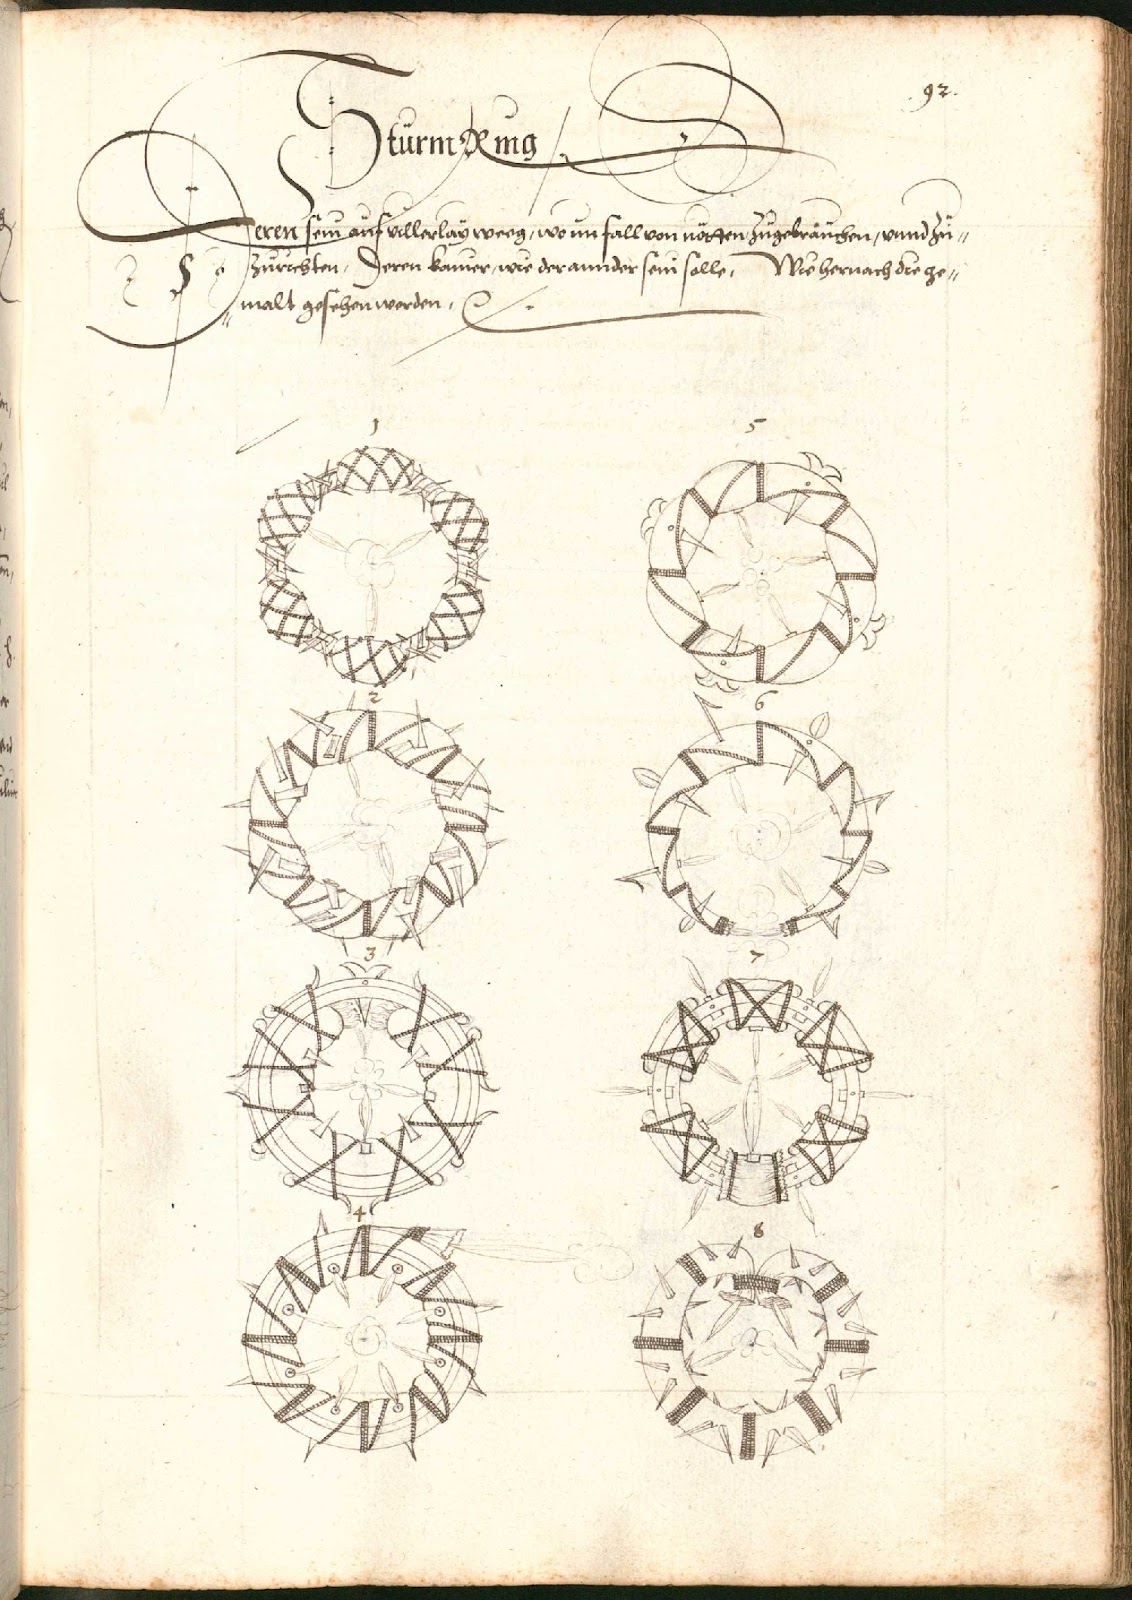 92.
Sturm Ring
Deren sein auf villerlay weeg, wo im fall von nötten zugebrauchen, vnnd zu=
zurichten, Deren kainer, wie der annder sein solle, Wie hernach die ge=
malt gesehen werden,
1
5
2
6
3
7
4
8